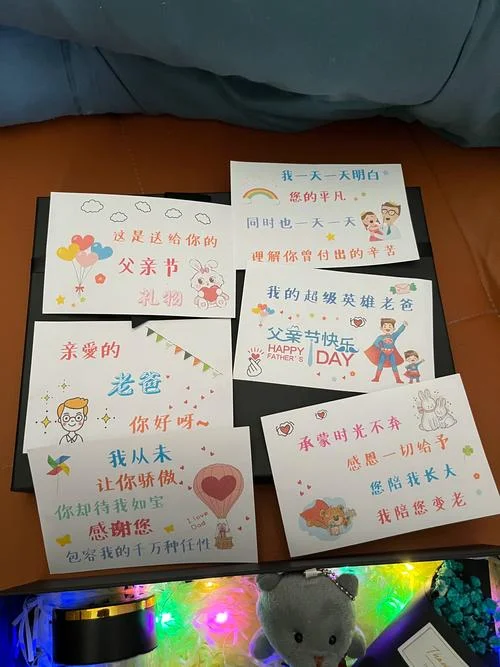 我一天一天明白
您的平凡
同时也一天一天
理解你曾付出的辛苦
这是送给你的
父亲节
礼物
我的超级英雄老爸
父亲节快乐
HAPPY
FATHER'S DAY
亲爱的
老爸
你好呀~
承蒙时光不弃
感恩一切给予
您陪我长大
我陪您变老
我从未
让你骄傲
你却待我如宝
感谢您
包容我的千万种任性
I love
Dad